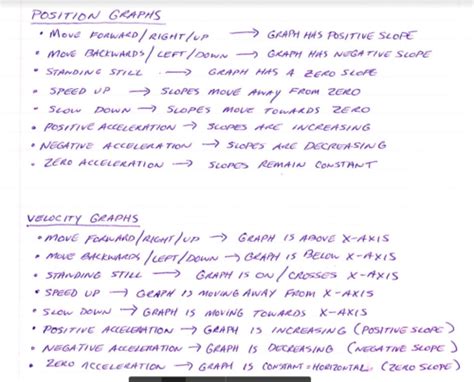 POSITION GRAPHS
• MOVE FORWARD/RIGHT/UP → GRAPH HAS POSITIVE SLOPE
• MOVE BACKWARDS/LEFT/DOWN → GRAPH HAS NEGATIVE SLOPE
• STANDING STILL → GRAPH HAS A ZERO SLOPE
• SPEED UP → SLOPES MOVE AWAY FROM ZERO
• SLOW DOWN → SLOPES MOVE TOWARDS ZERO
• POSITIVE ACCELERATION → SLOPES ARE INCREASING
• NEGATIVE ACCELERATION → SLOPES ARE DECREASING
• ZERO ACCELERATION → SLOPES REMAIN CONSTANT
VELOCITY GRAPHS
• MOVE FORWARD/RIGHT/UP → GRAPH IS ABOVE X-AXIS
• MOVE BACKWARDS/LEFT/DOWN → GRAPH IS BELOW X-AXIS
• STANDING STILL → GRAPH IS ON/CROSSES X-AXIS
• SPEED UP → GRAPH IS MOVING AWAY FROM X-AXIS
• SLOW DOWN → GRAPH IS MOVING TOWARDS X-AXIS
• POSITIVE ACCELERATION → GRAPH IS INCREASING (POSITIVE SLOPE)
• NEGATIVE ACCELERATION → GRAPH IS DECREASING (NEGATIVE SLOPE)
• ZERO ACCELERATION → GRAPH IS CONSTANT=HORIZONTAL (ZERO SLOPE)